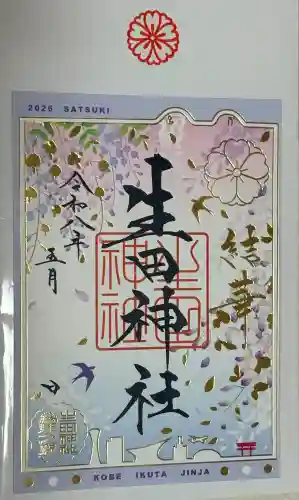 2026 SATSUKI
結華
生田神社
令和八年
五月
生田神社
KOBE IKUTA JINJA